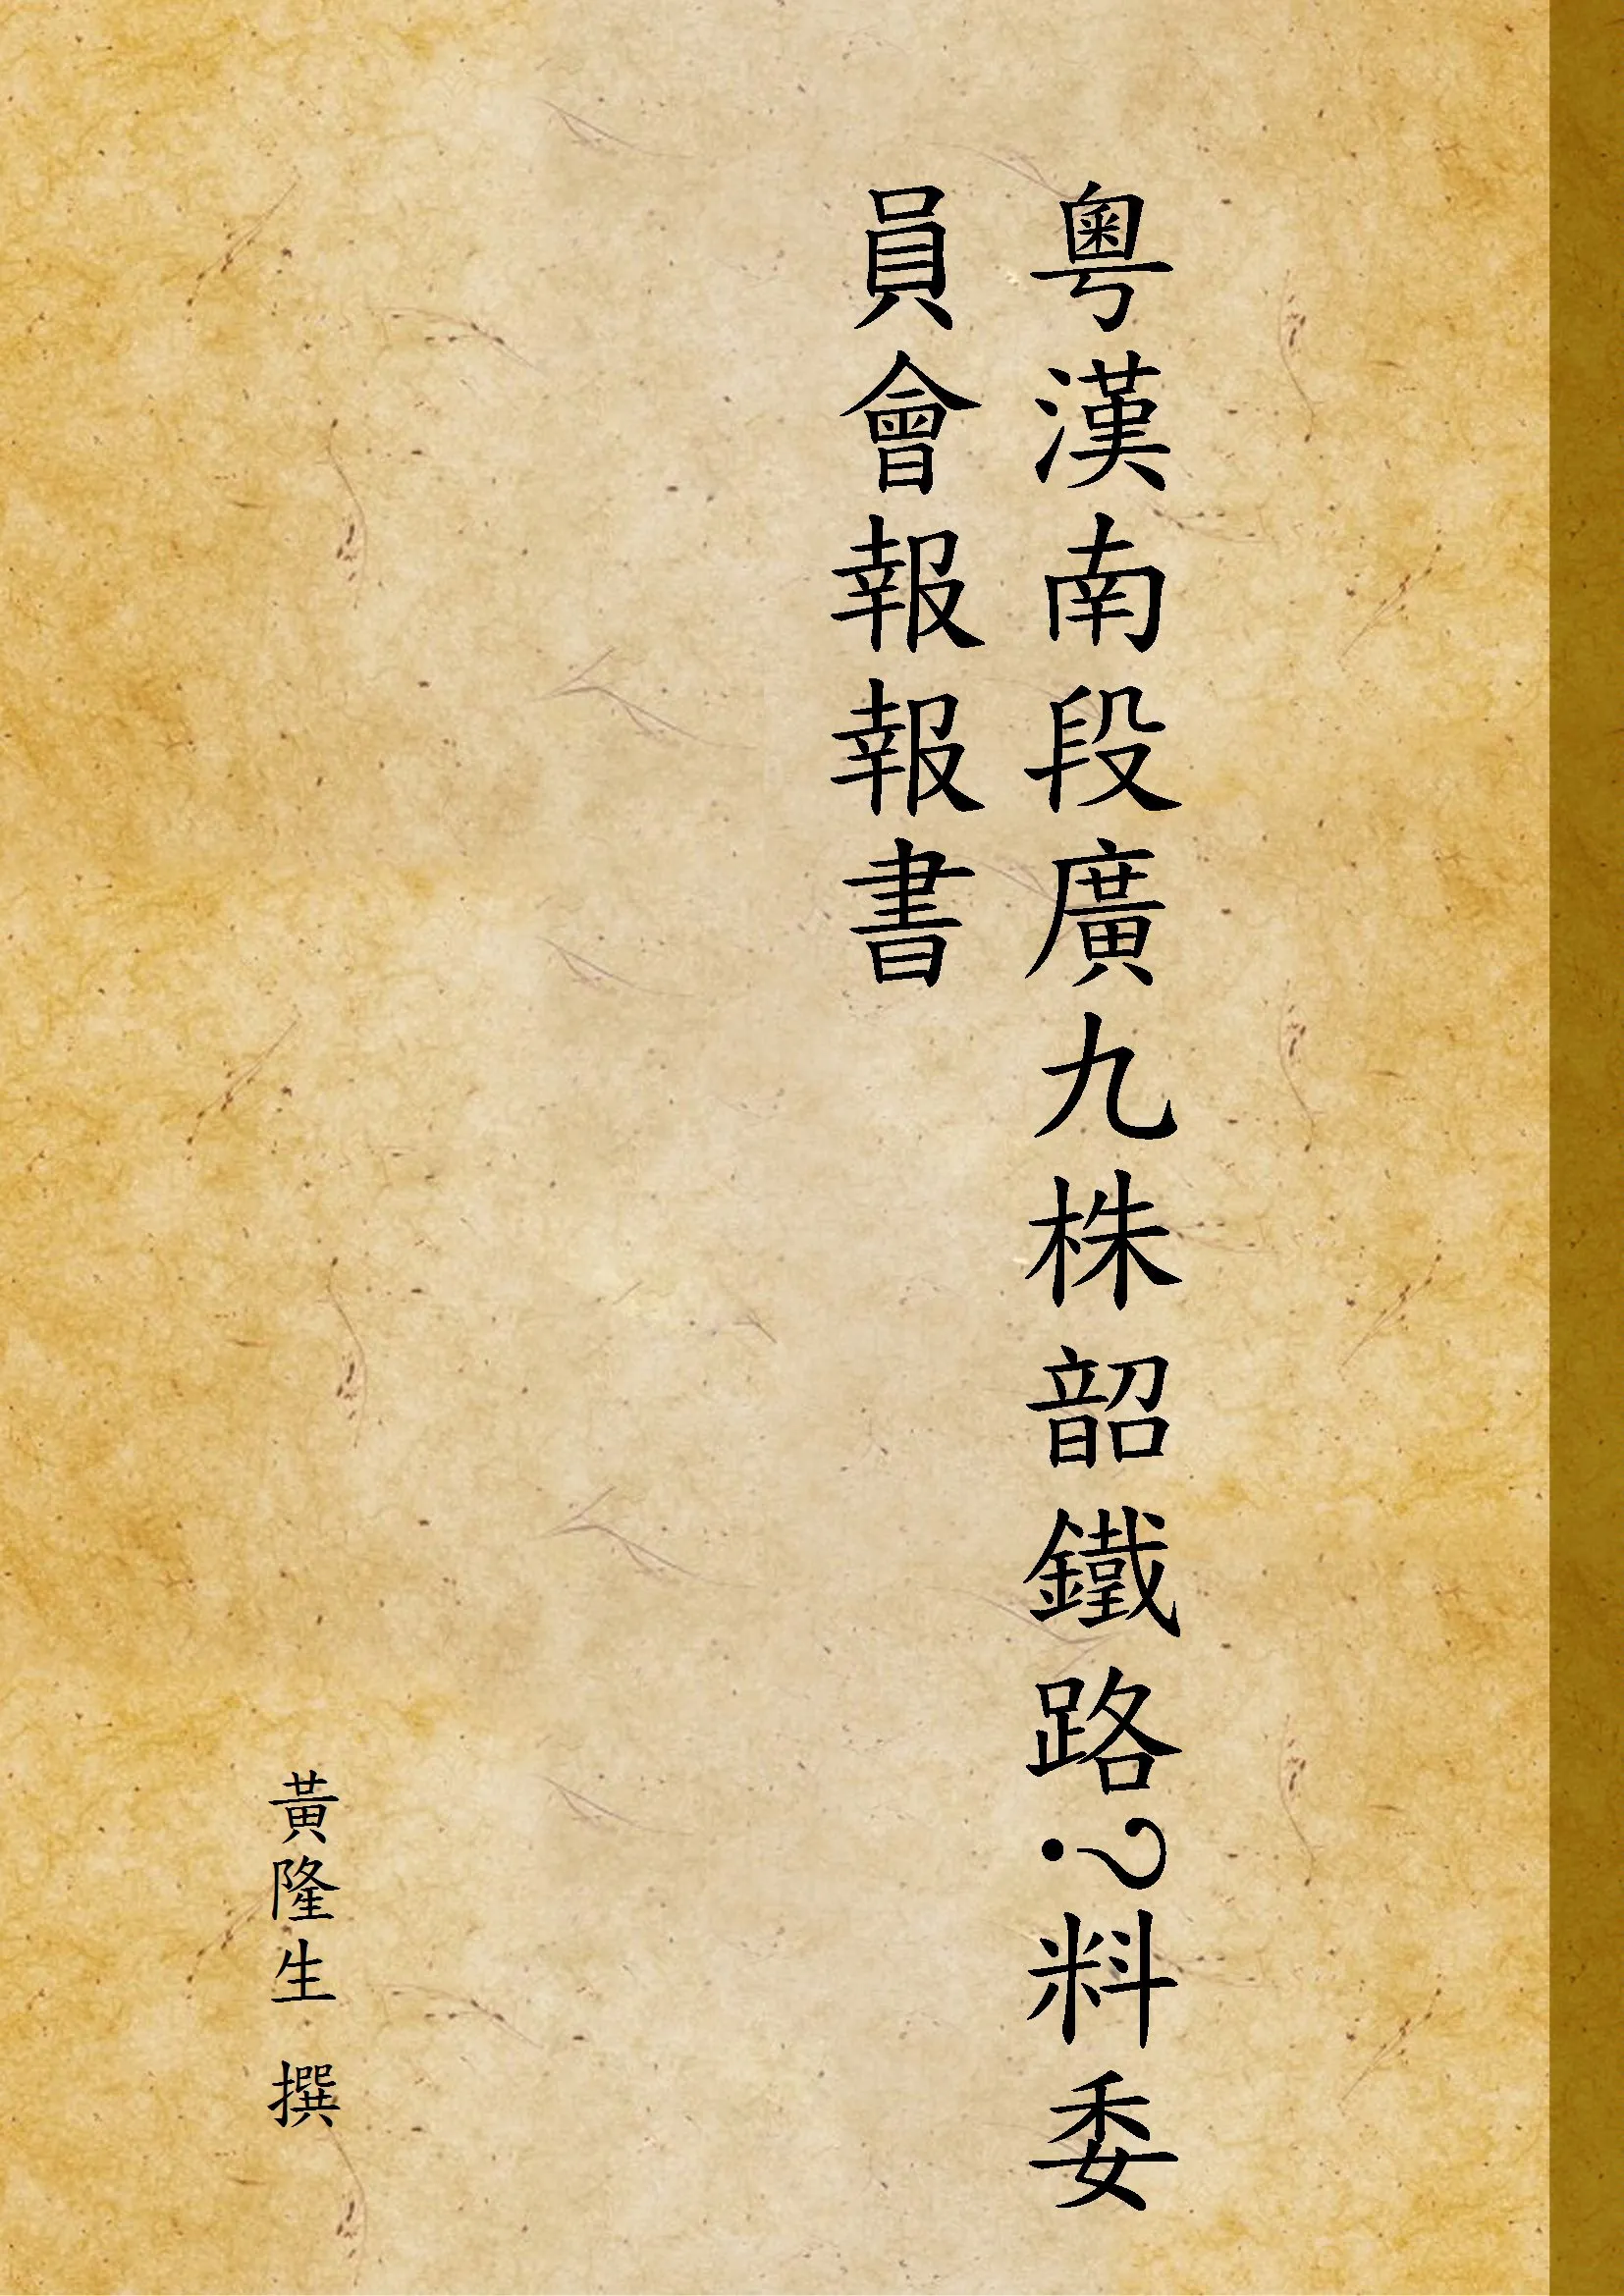 粵漢南段廣九株韶鐵路?料委
員會報報書
黃隆生 撰